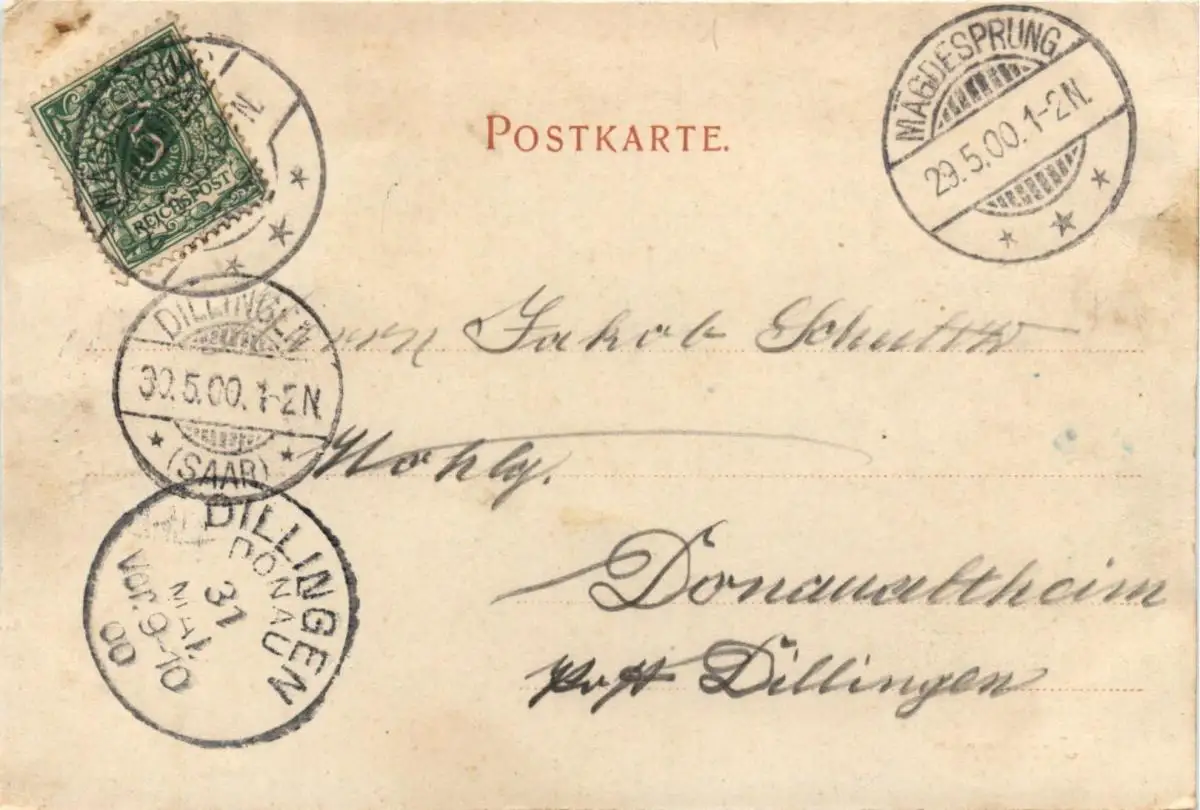 POSTKARTE.
MÄGDESPRUNG
29.5.00.1-2N.
5
REICHSPOST
DILLINGEN
30.5.00.1-2N.
(SAAR)
Jakob
Wohlg.
Donaualtheim
Post Dillingen
DILLINGEN
DONAU
31
MAI
Vor.9-10
00